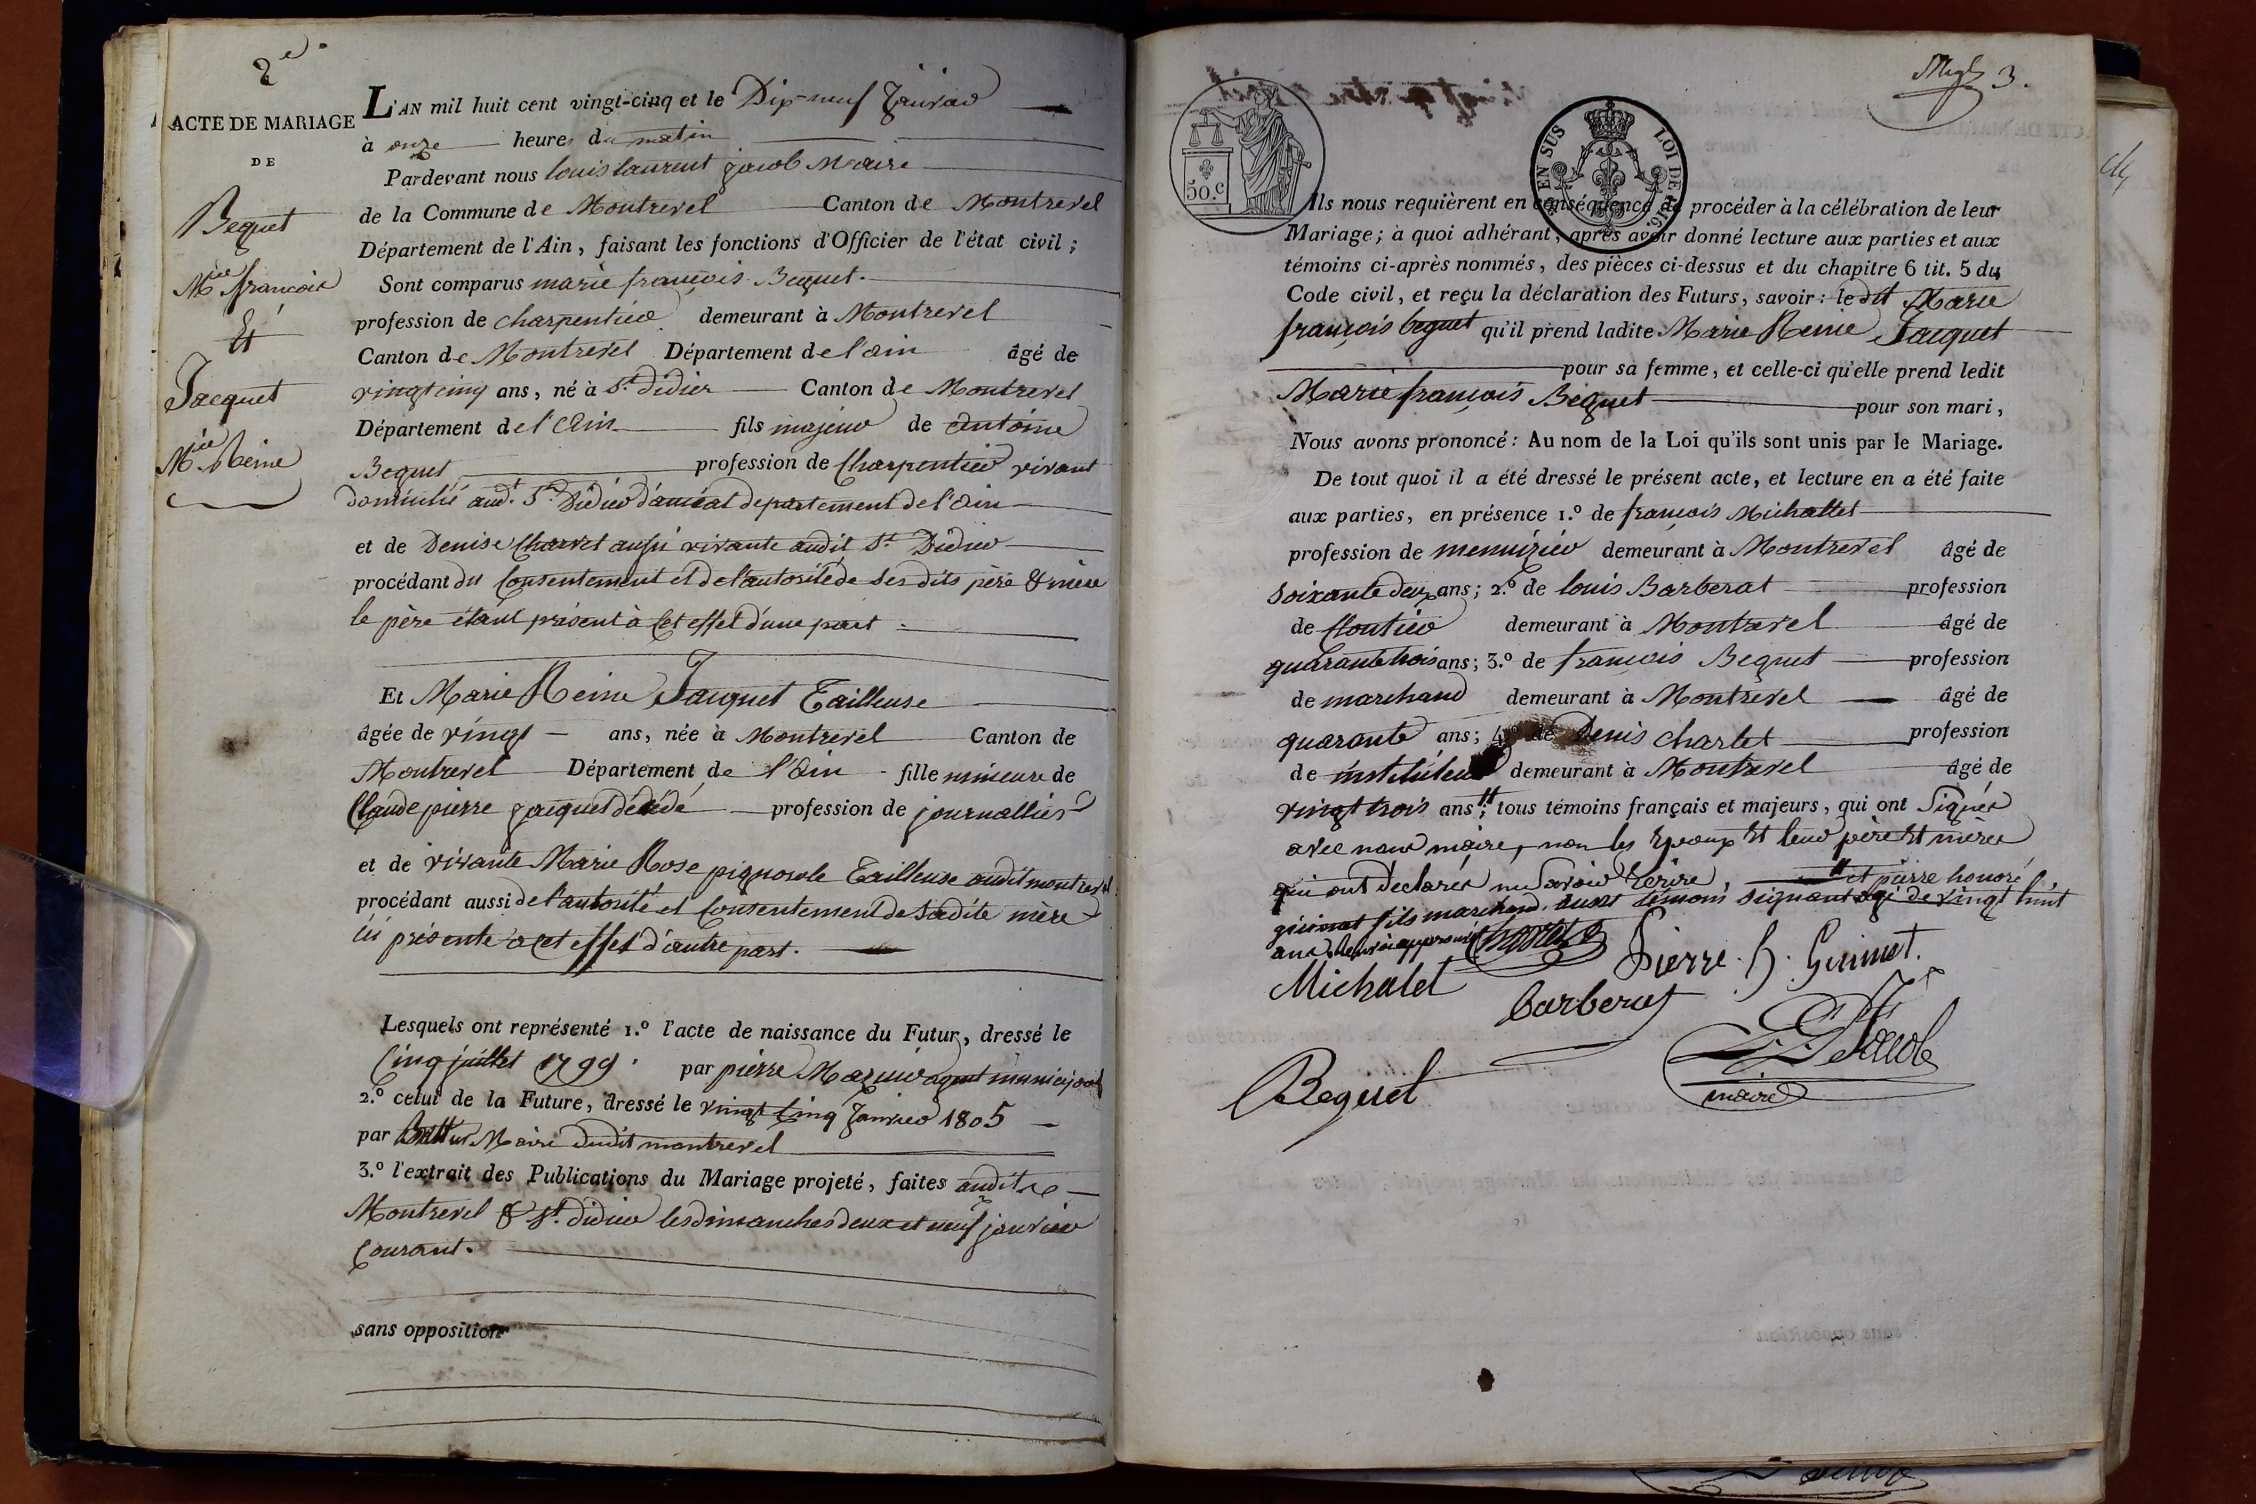 2e.
ACTE DE MARIAGE
DE
Bequet
Mie françois
Et
Jacquet
Mie Reine
L'AN mil huit cent vingt-cinq et le Dix-neuf Janvier
à onze heures du matin
Pardevant nous louis laurent jacob Maire
de la Commune de Montrevel Canton de Montrevel
Département de l'Ain, faisant les fonctions d'Officier de l'état civil;
Sont comparus marie françois Bequet.
profession de charpentier demeurant à Montrevel
Canton de Montrevel Département de l'ain âgé de
vingt cinq ans, né à St. Didier Canton de Montrevel
Département de l'Ain fils majeur de antoine
Bequet profession de Charpentier vivant
domicilié aud. St. Didier d'aussiat departement de l'ain
et de Denise Charvet aussi vivante audit St Didier
procédant du Consentement et de l'autorité de ses dits père & mère
le père étant présent à Cet effet d'une part.
Et Marie Reine Jacquet Tailleuse
âgée de vingt ans, née à Montrevel Canton de
Montrevel Département de l'Ain fille mineure de
Claude pierre jacquet décédé profession de journallier
et de vivante Marie Rose Tailleuse audit montrevel
procédant aussi de l'autorité et Consentement de sadite mère
ici présente a cet effet d'autre part.
Lesquels ont représenté 1.º l'acte de naissance du Futur, dressé le
Cinq juillet 1799. par pierre agent municipal
2.º celui de la Future, dressé le vingt Cinq Janvier 1805
par Maire dudit montrevel
3.º l'extrait des Publications du Mariage projeté, faites audit
Montrevel & St. Didier les dimanches deux et neuf janvier
Courant.
sans opposition
3.
50.c
EN SUS LOI DE 1816.
Ils nous requièrent en conséquence de procéder à la célébration de leur
Mariage; à quoi adhérant, après avoir donné lecture aux parties et aux
témoins ci-après nommés, des pièces ci-dessus et du chapitre 6 tit. 5 du
Code civil, et reçu la déclaration des Futurs, savoir: le dit Marie
françois bequet qu'il prend ladite Marie Reine Jacquet
pour sa femme, et celle-ci qu'elle prend ledit
Marie françois Bequet pour son mari,
Nous avons prononcé: Au nom de la Loi qu'ils sont unis par le Mariage.
De tout quoi il a été dressé le présent acte, et lecture en a été faite
aux parties, en présence 1.º de françois Michallet
profession de menuizier demeurant à Montrevel âgé de
soixante deux ans; 2.º de louis Barberat profession
de Cloutier demeurant à Montrevel âgé de
quarante trois ans; 3.º de françois Bequet profession
de marchand demeurant à Montrevel âgé de
quarante ans; 4.º de Denis charlet profession
de instituteur demeurant à Montrevel âgé de
vingt trois ans; tous témoins français et majeurs, qui ont Signés
avec nous maire, non les Epoux Et leur père Et mères
qui ont déclarés ne Savoir Ecrire, et pierre honoré
fils marchand aussi témoin signant agé de vingt huit
ans
Michalet
Pierre. h. Guimet.
barberat
L. L. Jacob
maire
Bequet